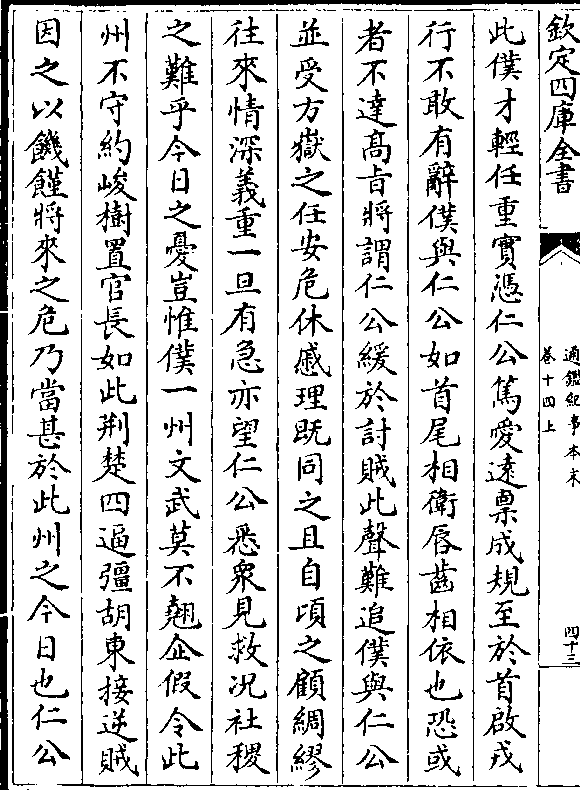 欽定四庫全書
通鑑紀事本末
卷十四上
四十三
此僕才輕任重實憑仁公篤愛遠禀成規至於首啟戎
行不敢有辭僕與仁公如首尾相衛唇齒相依也恐或
者不達髙㫖將謂仁公緩於討賊此聲難追僕與仁公
並受方嶽之任安危休戚理既同之且自頃之顧綢繆
往來情深義重一旦有急亦望仁公悉衆見救况社稷
之難乎今日之憂豈惟僕一州文武莫不翹企假令此
州不守約峻樹置官長如此荆楚四逼彊胡東接逆賊
因之以饑饉將來之危乃當甚於此州之今日也仁公